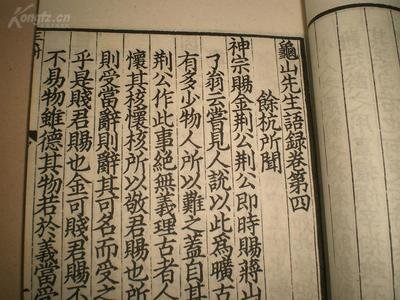 龜山先生語錄卷第四
餘杭所聞
神宗賜金荆公荆公即時賜蔣山
了翁云嘗見人說以此爲曠古
有多少物人所以難之蓋自其
荆公作此事絕無義理古者人
懷其核懷核所以敬君賜也所
則受當辭則辭其可名而受之
乎是賤君賜也金可賤君賜不
不易物雖德其物若於義當受
Kongfz.cn